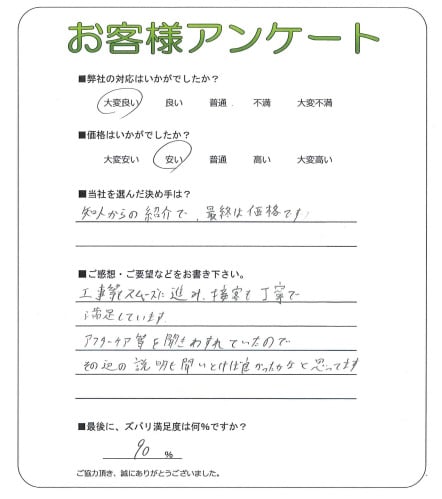 お客様アンケート
■弊社の対応はいかがでしたか?
大変良い 良い 普通 不満 大変不満
■価格はいかがでしたか?
大変安い 安い 普通 高い 大変高い
■当社を選んだ決め手は?
知人からの紹介で、最終は価格です。
■ご感想・ご要望などをお書き下さい。
工事等もスムーズに進み、接客も丁寧で
満足しています
アフターケア等を聞きわすれていたので
その辺の説明も聞いとけば良かったかなと思ってます
■最後に、ズバリ満足度は何%ですか?
90 %
ご協力頂き、誠にありがとうございました。